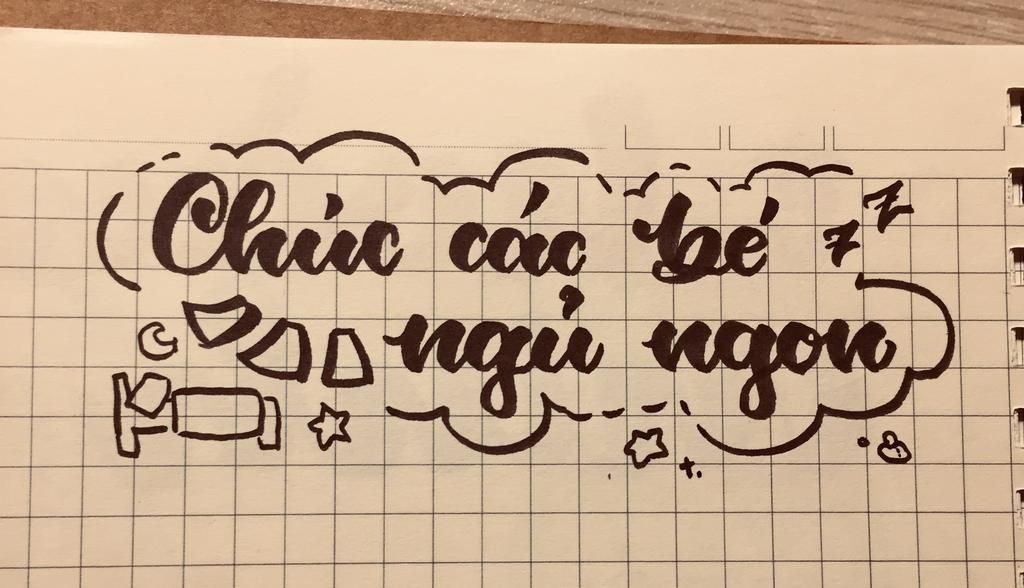 Chúc các bé zz
ngủ ngon